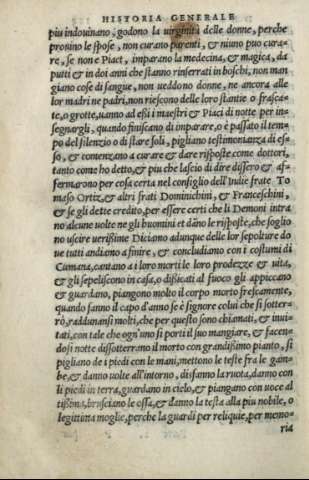 HISTORIA GENERALE
piu indouinano, godono la uirginità delle donne, perche
prouino le spose, non curano parenti, & niuno puo cura-
re, se non e Piact, imparano la medecina, & magica, da
putti & in doi anni che stanno rinserrati in boschi, non man
giano cose di sangue, non ueddono donne, ne ancora alle
lor madri ne padri, non riescono delle loro stantie o frasca-
te, o grotte, uanno ad essi i maestri & Piaci di notte per in-
segnargli, quando finiscano di imparare, o è passato il tem-
po del silenzio o di stare soli, pigliano testimonianza di es-
so, & comenzano a curare & dare risposte come dottori,
tanto come ho detto, & piu che lascio di dire dissero & af-
fermarono per cosa certa nel consiglio dell'Indie frate To
maso Ortiz, & altri frati Dominichini, & Franceschini,
& se gli dette credito, per essere certi che li Demoni intra
no alcune uolte ne gli huomini et dãno le risposte, che soglio
no uscire uerissime Diciano adunque delle lor sepolture do
ue tutti andiamo a finire, & concludiamo con i costumi di
Cumana, cantano a i loro morti le loro prodezze & uita,
& gli sepeliscono in casa, o disificati al fuoco gli appiccano
& guardano, piangono molto il corpo morto frescamente,
quando fanno il capo d'anno se è signore colui che si sotter-
rò, raddunansi molti, che per questo sono chiamati, & inui-
tati, con tale che ogn'uno si porti il suo mangiare, & facen-
dosi notte dissotterrano il morto con grandissimo pianto, si
pigliano de i piedi con le mani, mettono le teste fra le gam-
be, & danno uolte all'intorno, disfanno la ruota, danno con
li piedi in terra, guardano in cielo, & piangano con uoce al
tissima, brusciano le ossa, & danno la testa alla piu nobile, o
legittima moglie, perche la guardi per reliquie, per memo-
ria